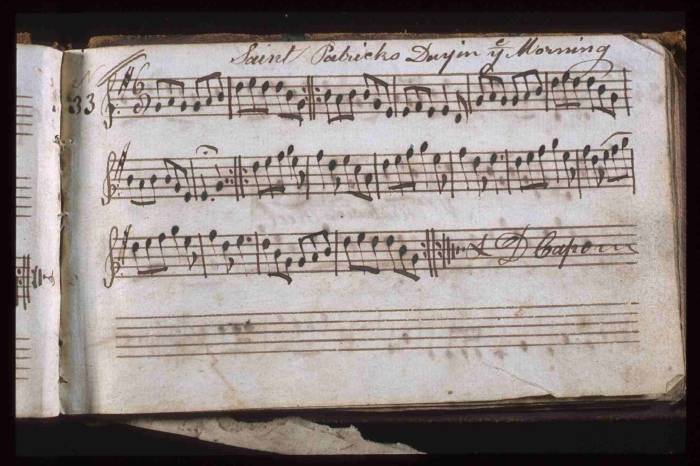 Saint Patricks Day in yᵉ Morning
33
6
8
& D Capo